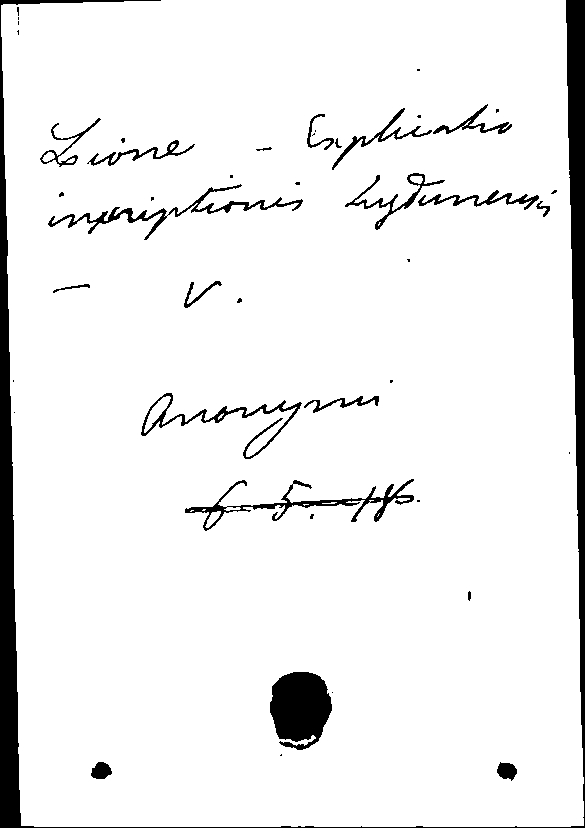 Lione - Explicatio
inscriptionis Lugdunensis
- V.
Anonymi
6 5. 18